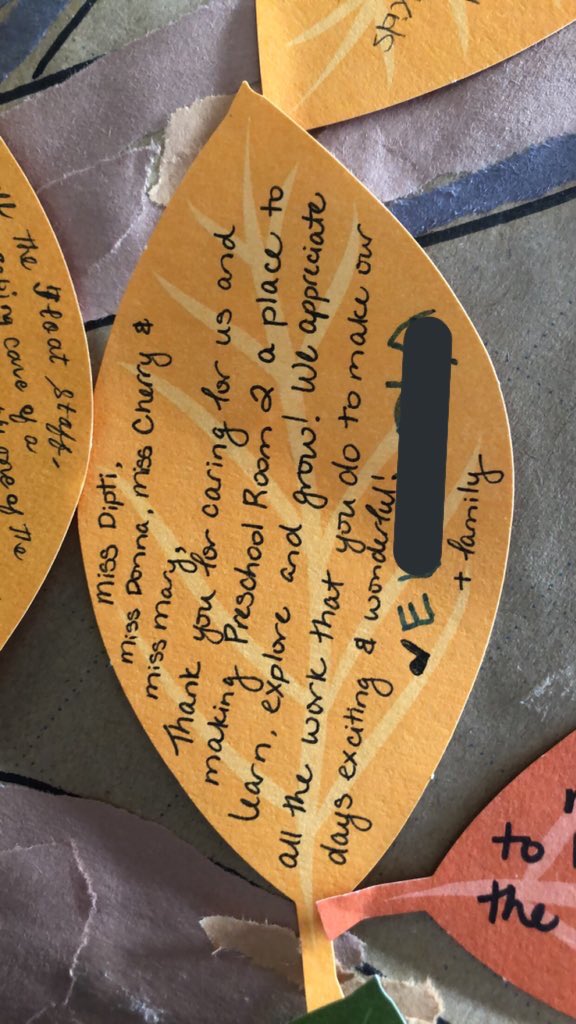 Miss Dipti,
Miss Donna, Miss Cherry &
Miss Mary,
Thank you for caring for us and
making Preschool Room 2 a place to
learn, explore and grow! We appreciate
all the work that you do to make our
days exciting & wonderful!
E
+ family
the float staff-
caring care of a
of the
to
the